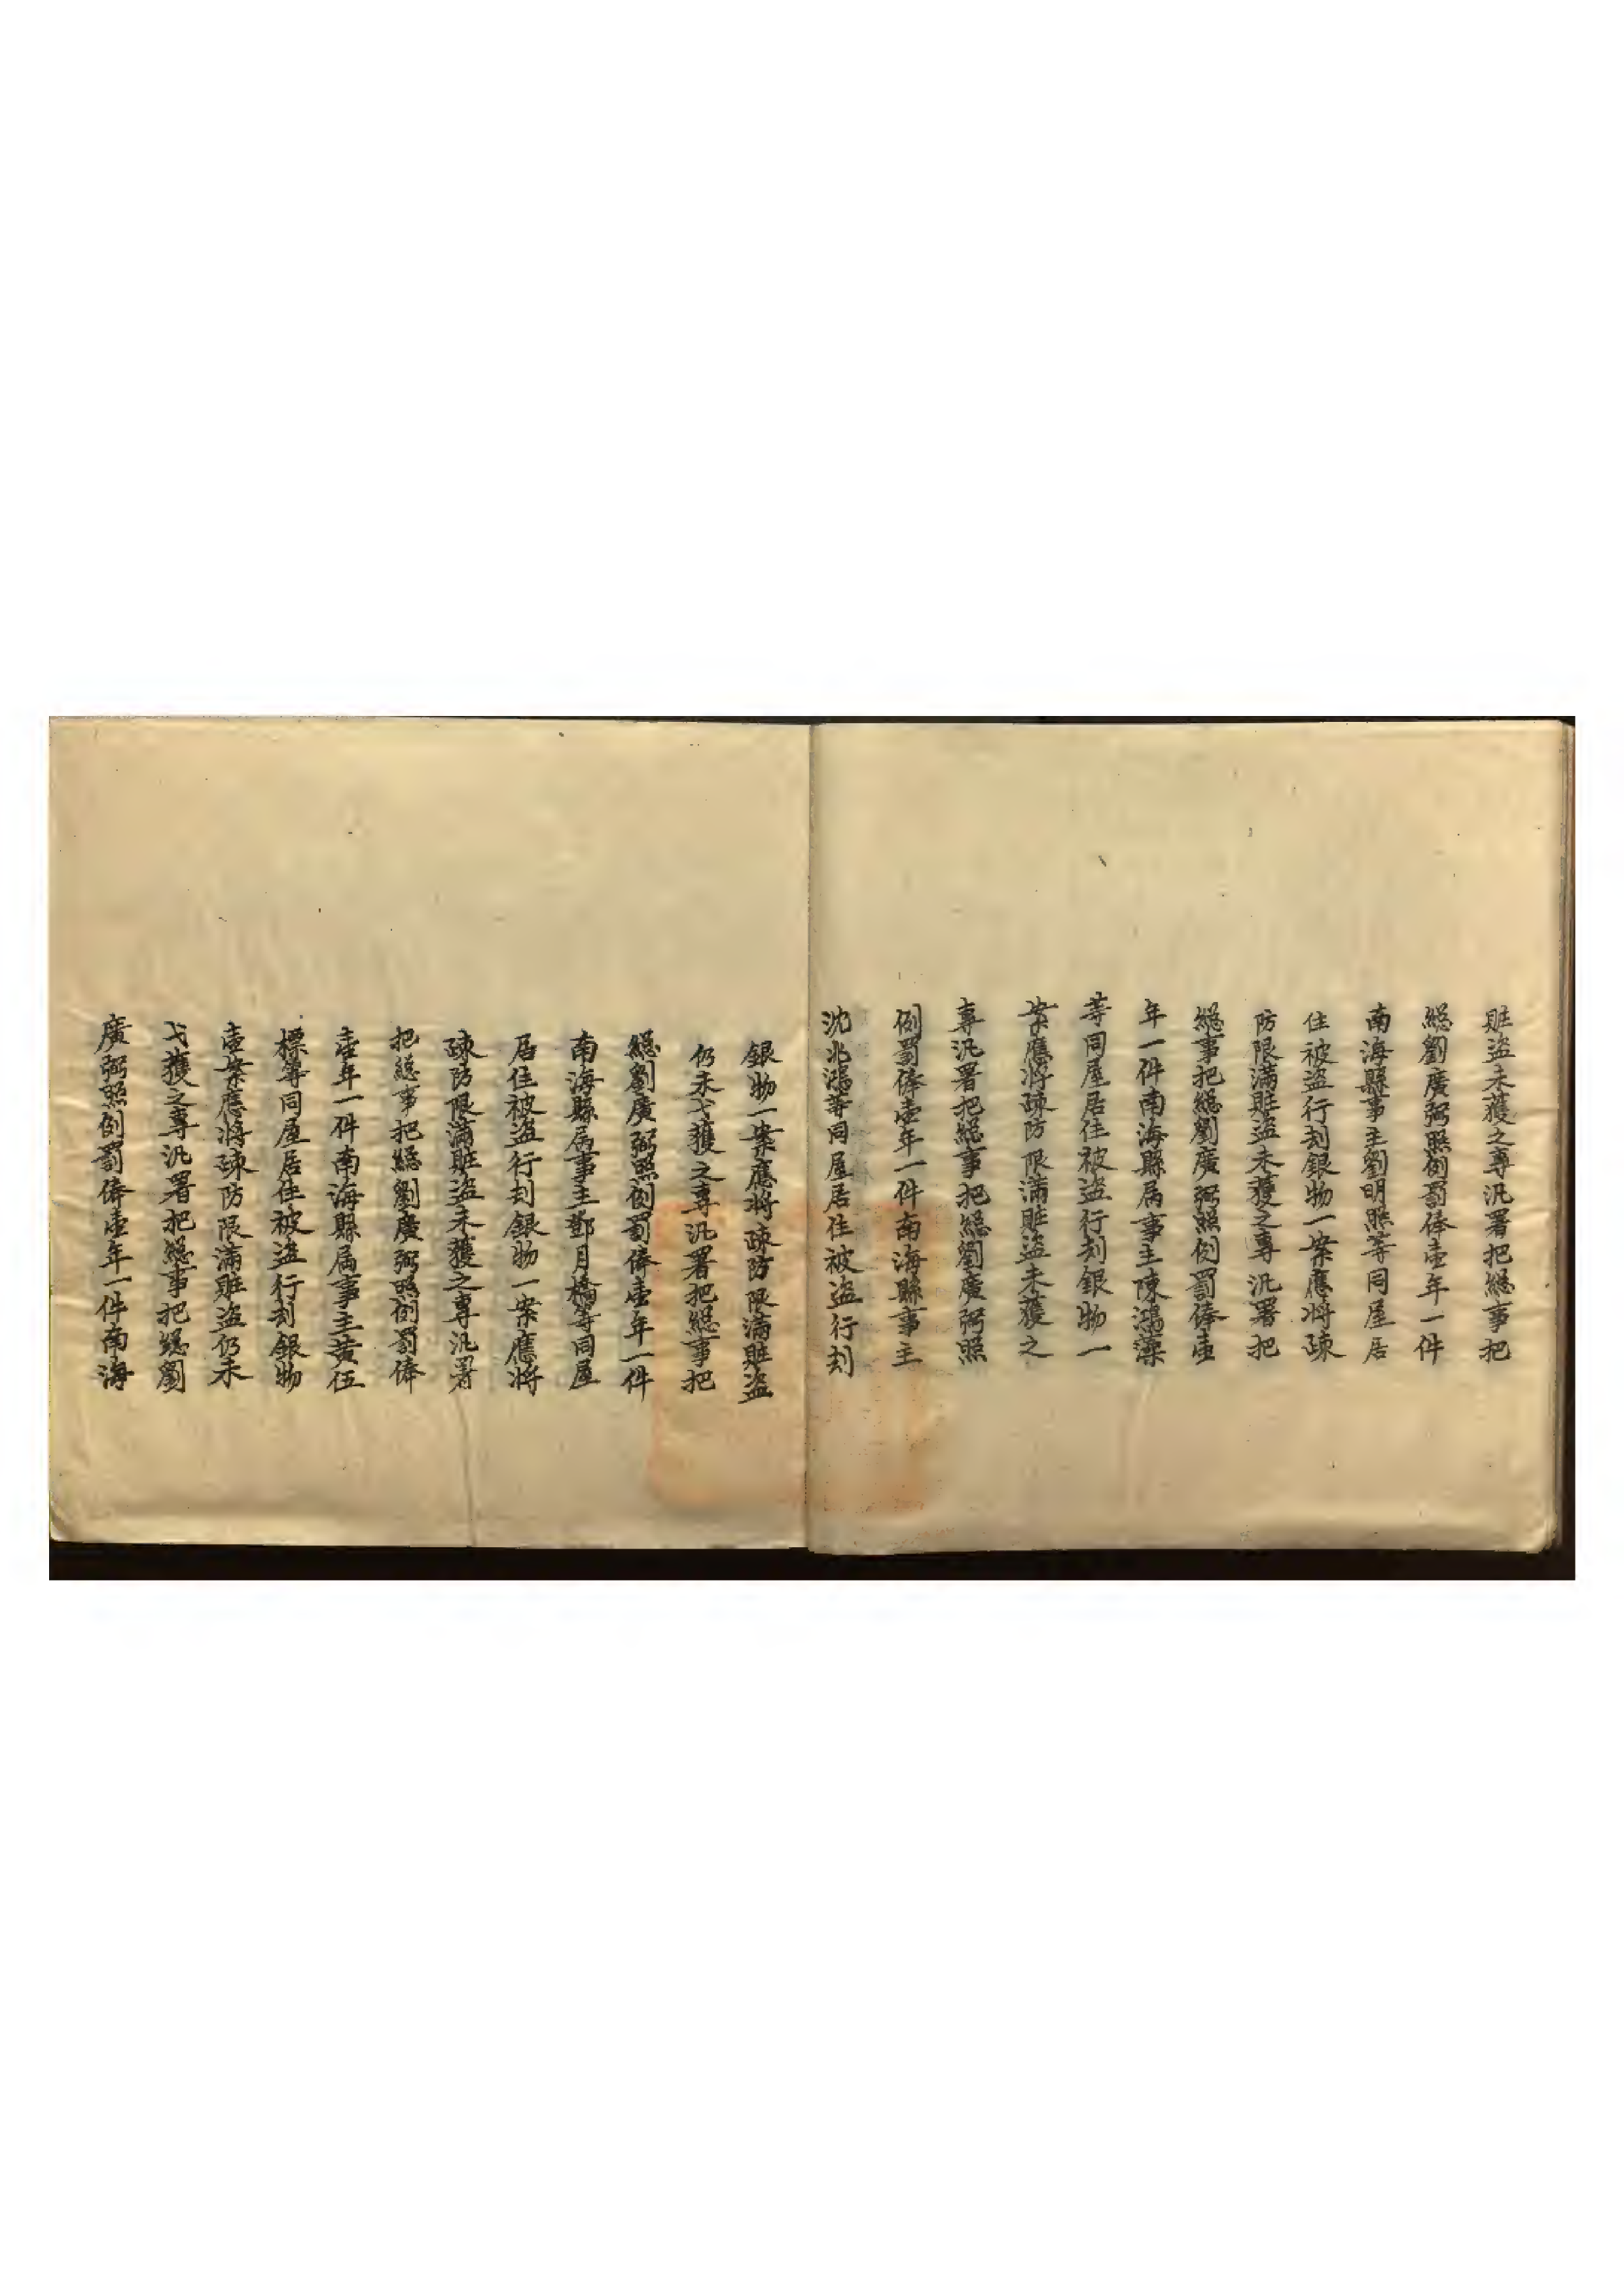 賍盗未獲之專汛署把緫事把
緫劉廣弼照例罰俸壹年一件
南海縣事主劉明照等同屋居
住被盗行刦銀物一案應將疎
防限滿賍盗未獲之專汛署把
緫事把緫劉廣弼照例罰俸壹
年一件南海縣属事主陳鴻藻
等同屋居住被盗行刦銀物一
案應将疎防限滿賍盗未獲之
專汛署把緫事把緫劉廣弼照
例罰俸壹年一件南海縣事主
沈兆鴻等同屋居住被盗行刦
銀物一案應将疎防限滿賍盗
仍未弋獲之專汛署把緫事把
緫劉廣弼照例罰俸壹年一件
南海縣属事主鄧月橋等同屋
居住被盗行刦銀物一案應将
疎防限滿賍盗未獲之專汛署
把緫事把緫劉廣弼照例罰俸
壹年一件南海縣属事主黄伍
標等同屋居住被盗行刦銀物
壹案應将疎防限滿賍盗仍未
弋獲之專汛署把緫事把緫劉
廣弼照例罰俸壹年一件南海